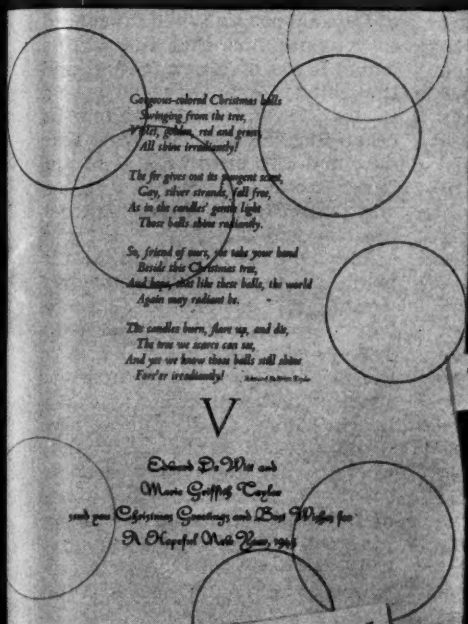 Gorgeous-colored Christmas balls
Swinging from the tree,
Violet, golden, red and green,
All shine irradiantly!
The fir gives out its pungent scent,
Gay, silver strands, fall free,
As in the candles' gentle light
Those balls shine radiantly.
So, friend of ours, we take your hand
Beside this Christmas tree,
And hope, that like these balls, the world
Again may radiant be.
The candles burn, flare up, and die,
The tree we scarce can see,
And yet we know those balls still shine
Fore'er irradiantly!
Edward DeWitt Taylor
V
Edward De Witt and
Marie Griffith Taylor
send you Christmas Greetings and Best Wishes for
A Hopeful New Year, 194